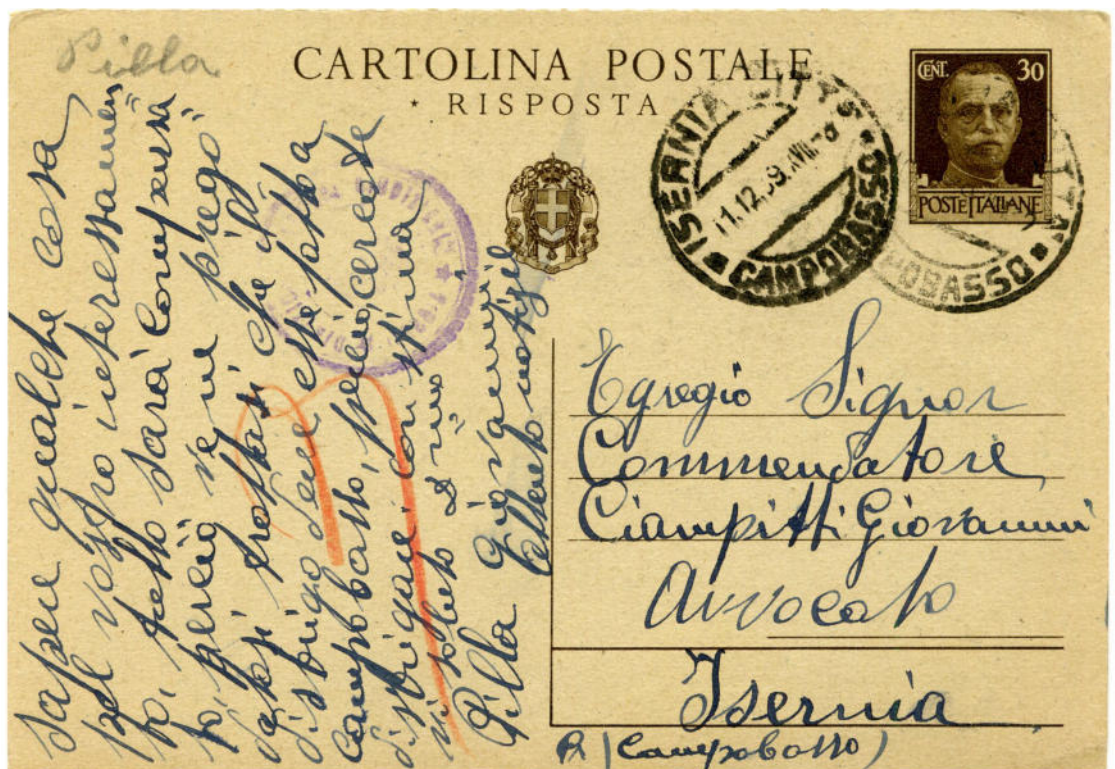 Pilla
CARTOLINA POSTALE
★ RISPOSTA
CENT. 30
POSTE ITALIANE
ISERNIA CITTÀ
11.12.39.XVIII
CAMPOBASSO
Egregio Signor
Commendatore
Ciampitti Giovanni
Avvocato
Isernia
(Campobasso)
sapere qualche cosa
pel vostro interessamen
to, tutto sarà compensa
to, perciò ve ne prego
darsi trattasi che il
disbrigo deve esse fatto a
Campobasso, perciò cercate
disbrigare con stima
vi saluto
Pilla Giovanni